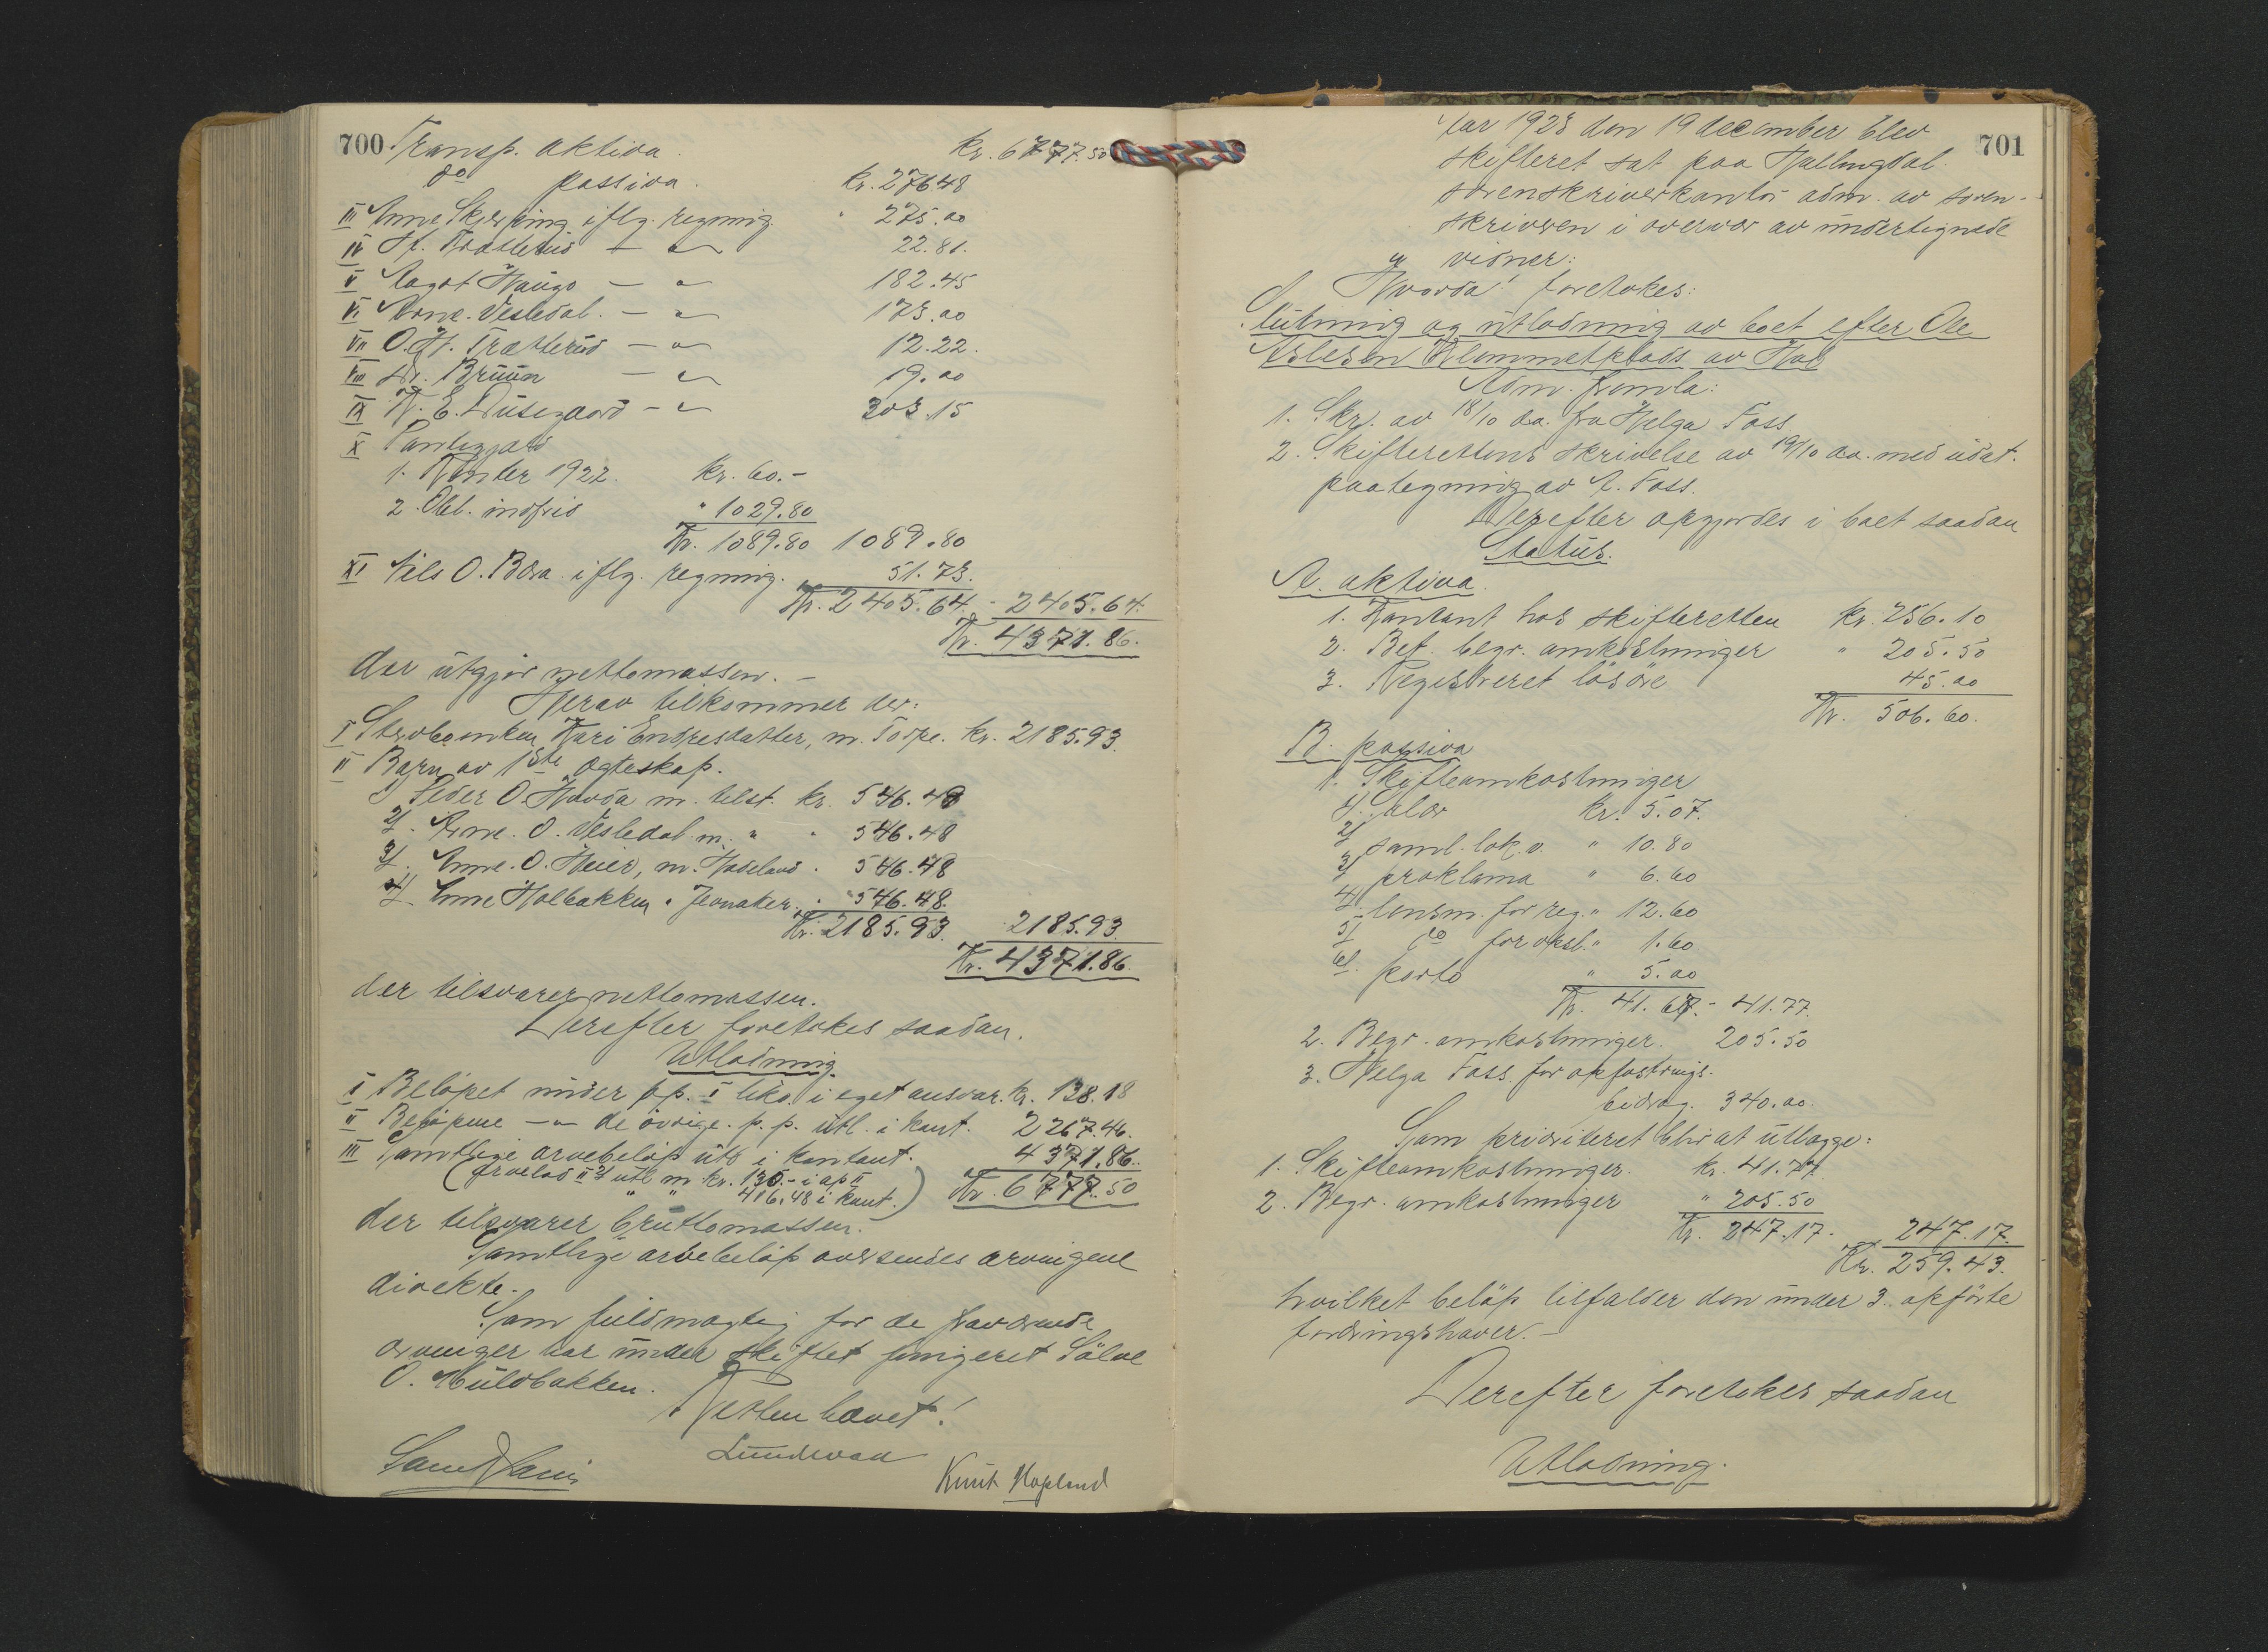 700 Transp. aktiva. kr. 6777.50
do passiva. kr. 276.48
III Anne Skerping iflg. regning. " 275.00
IV H. Trætterud — " — 22.81.
V Aagot Haugo — " — 182.45
VI Arne. Vesledal. — " — 173.00
VII O. H. Trætterud — " — 12.22.
VIII Dr. Bruun — " — 19.00
IX K. E. — " — 303.15
X Pantegjæld
1. Renter 1922. kr. 60.-
2. Obl. indfrid " 1029.80
Kr. 1089.80 1089.80
XI Nils O. Bæra iflg. regning. " 51.73.
Kr. 2405.64. - 2405.64.
Kr. 4371.86.
der utgjør nettomassen. -
Herav tilkommer der:
I Stervboenken Kari Endresdatter, m. Torpe. kr. 2185.93.
II Barn av 1ste ægteskap.
1) Peder O. Hovda m. tilst. kr. 546.48
2). Arne. O. Vesledal m. " " 546.48
3). Anne. O. Heier, m. Hadeland. 546.48
4). Anne Halbakken " Jevnaker. " 546.48.
Kr. 2185.93. 2185.93.
Kr. 4371.86.
der tilsvarer nettomassen.
Derefter foretokes saadan.
Utlodning.
I Beløpet under p.p. I tilst. i eget ansvar. kr. 138.18
II Beløpene — " — de øvrige. p.p. utl. i kont. 2267.46.
III Samtlige arvebeløp utl i kontant. 4371.86.
(arvelod II 2 utl m. kr. 130.- i ap II
" " 416.48 i kont.) Kr. 6777.50
der tilsvarer bruttomassen.
Samtlige arvebeløp oversendes arvingene
direkte.
Som fuldmægtig for de fraværende
arvinger har under skiftet fungeret Sölve
O. Muldbakken.
Retten hævet!
Knut Hopland
701
Aar 1923 den 19 december blev
skifteret sat paa Hallingdal
sorenskriverkontor adm. av soren-
skriveren i overvær av undertegnede
vidner:
Hvorda! foretokes:
Slutning og utlodning av boet efter Ole
Aslesen Klemmetplads av Hol
Adm. fremla:
1. Skr. av 18/10 d.a. fra Helga Foss.
2. Skifterettens skrivelse av 19/10 d.a. med udat.
paategning av H. Foss.
Derefter opgjordes i boet saadan
Status.
A. aktiva.
1. Kontant hos skifteretten kr. 256.10
2. Bet. begr. omkostninger " 205.50
3. Registreret løsøre 45.00
Kr. 506.60.
B. passiva
1. Skifteomkostninger
1). Salær kr. 5.07.
2) saml. lok. v. " 10.80
3) proklama " 6.60
4) lensm. for reg. " 12.60
5) do for 1.60
6). porto " 5.00
Kr. 41.67. - 41.77.
2. Begr. omkostninger. 205.50
3. Helga Foss for opfostrings-
bidrag. 340.00.
Som prioriteret blir at utlægge:
1. Skifteomkostninger. kr. 41.77
2. Begr. omkostninger " 205.50
Kr. 247.17. 247.17.
Kr. 259.43.
hvilket beløp tilfalder den under 3. opførte
fordringshaver. -
Derefter foretokes saadan
Utlodning.